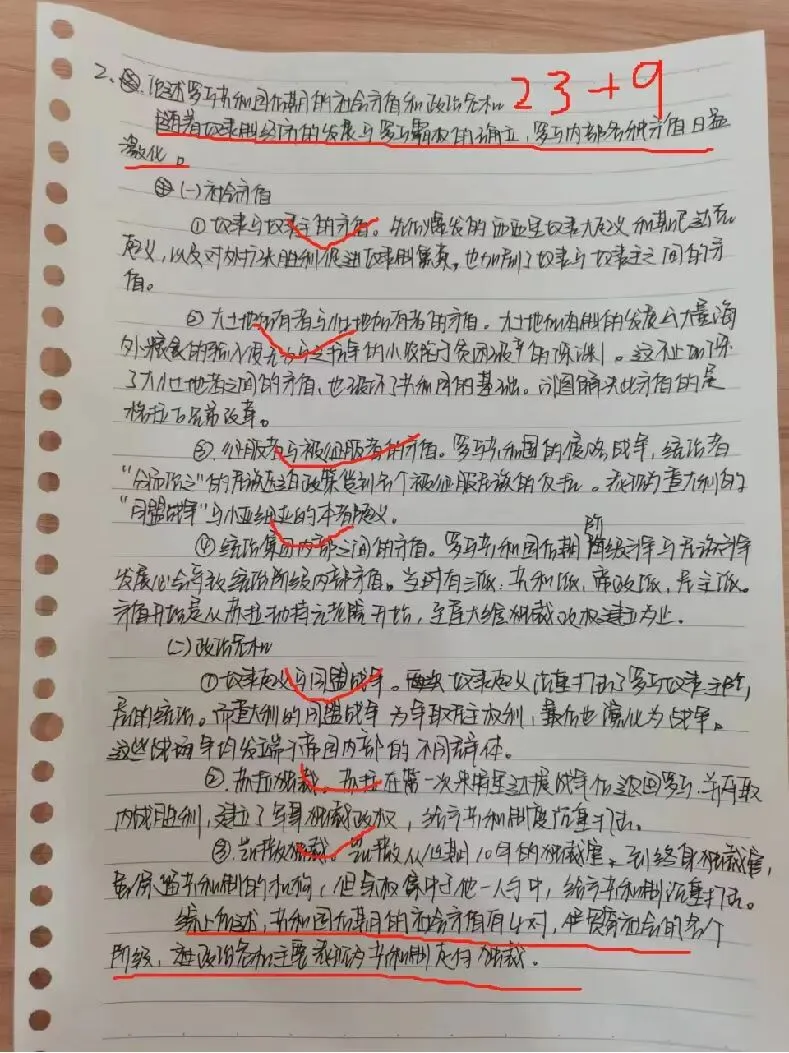 2、论述罗马共和国后期的社会矛盾和政治危机 23+9
随着奴隶制经济的发展与罗马霸权的确立，罗马内部各种矛盾日益
激化。
(一)社会矛盾
①奴隶与奴隶主的矛盾。先后爆发的西西里奴隶大起义和斯巴达克
起义，以及对外扩张胜利促进奴隶制繁荣，也加剧了奴隶与奴隶主之间的矛
盾。
②大土地所有者与小土地所有者的矛盾。大土地所有制的发展与大量海
外粮食的输入使无力与之抗争的小农陷于贫困破产的深渊。这不止加深
了大小土地者之间的矛盾，也破坏了共和国的基础。试图解决此矛盾的是
格拉古兄弟改革。
③征服者与被征服者的矛盾。罗马共和国的侵略战争，统治者
“分而治之”的民族压迫政策受到各个被征服民族的反抗。表现为意大利的
“同盟战争”与小亚细亚的本都起义。
④统治集团内部之间的矛盾。罗马共和国后期阶级斗争与民族斗争
发展必会导致统治阶级内部矛盾。当时有三派：共和派，帝政派，民主派。
矛盾开始是从苏拉劫持元老院开始，至屋大维独裁政权建立为止。
(二)政治危机
①奴隶起义与同盟战争。两次奴隶起义沉重打击了罗马奴隶主阶
层的统治。而意大利的同盟战争为争取民主权利，最后也演化为战争。
这些战争均发端于帝国内部的不同群体。
②苏拉独裁。苏拉在第一次米特里达提战争后返回罗马，并再取
内战胜利，建立了军事独裁政权，给予共和制度沉重打击。
③凯撒独裁。凯撒从任期10年的独裁官，到终身独裁官，
虽保留共和制的机构，但大权集中于他一人手中，给予共和制沉重打击。
综上所述，共和国后期的社会矛盾有4对，贯穿社会的各个
阶级，在政治危机主要表现为共和制走向独裁。